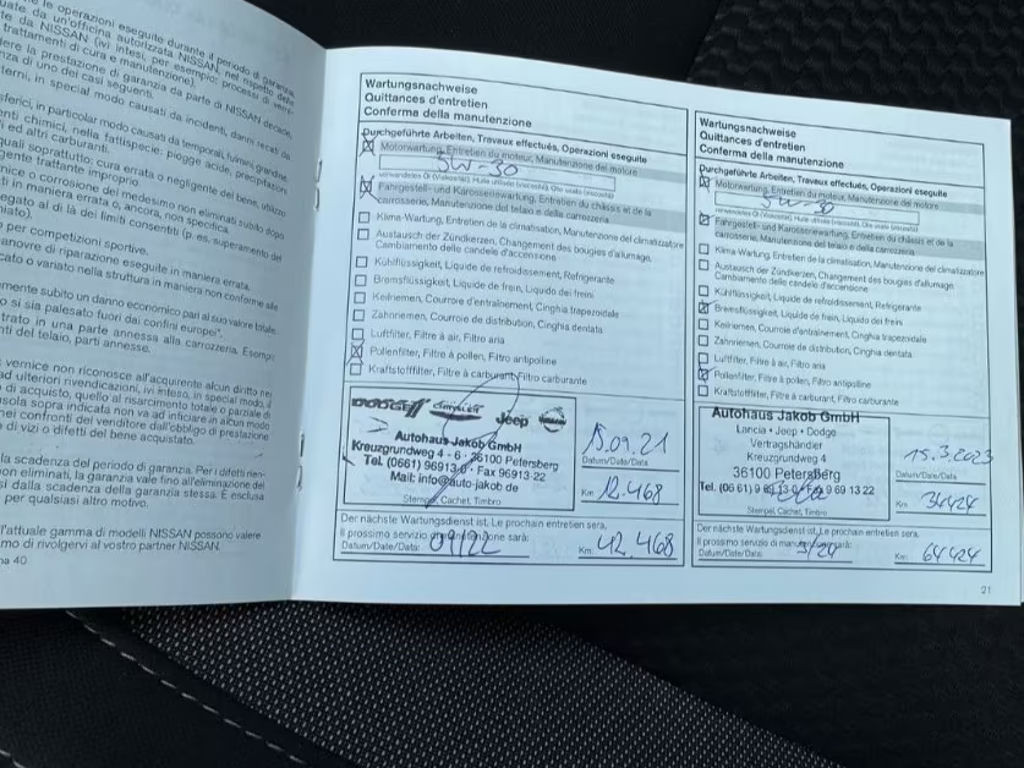 le operazioni eseguite durante il periodo di garanzia
da un'officina autorizzata NISSAN, nel rispetto delle
da NISSAN (ivi intesi, per esempio: processi di
trattamenti di cura e manutenzione).
la prestazione di garanzia da parte di NISSAN decade,
di uno dei casi seguenti.
in special modo causati da incidenti, danni recati da
in particolar modo causati da temporali, fulmini, grandine,
chimici, nella fattispecie: piogge acide, precipitazioni
ed altri carburanti.
quali soprattutto: cura errata o negligente del bene, utilizzo
trattante improprio.
o corrosione del medesimo non eliminati subito dopo
in maniera errata o, ancora, non specifica.
al di là dei limiti consentiti (p. es. superamento del
per competizioni sportive.
di riparazione eseguite in maniera errata.
o variato nella struttura in maniera non conforme alle
subito un danno economico pari al suo valore totale.
si sia palesato fuori dai confini europei".
in una parte annessa alla carrozzeria. Esempi:
del telaio, parti annesse.
vernice non riconosce all'acquirente alcun diritto nei
ad ulteriori rivendicazioni, ivi inteso, in special modo, il
di acquisto, quello al risarcimento totale o parziale di
sopra indicata non va ad inficiare in alcun modo
nei confronti del venditore dall'obbligo di prestazione
di vizi o difetti del bene acquistato.
la scadenza del periodo di garanzia. Per i difetti
non eliminati, la garanzia vale fino all'eliminazione del
dalla scadenza della garanzia stessa. È esclusa
per qualsiasi altro motivo.
l'attuale gamma di modelli NISSAN possono valere
di rivolgervi al vostro partner NISSAN.
40
Wartungsnachweise
Quittances d'entretien
Conferma della manutenzione
Durchgeführte Arbeiten, Travaux effectués, Operazioni eseguite
Motorwartung, Entretien du moteur, Manutenzione del motore
5W-30
verwendetes Öl (Viskosität), Huile utilisée (viscosité), Olio usato (viscosità)
Fahrgestell- und Karosseriewartung, Entretien du châssis et de la
carrosserie, Manutenzione del telaio e della carrozzeria
Klima-Wartung, Entretien de la climatisation, Manutenzione del climatizzatore
Austausch der Zündkerzen, Changement des bougies d'allumage,
Cambiamento delle candele d'accensione
Kühlflüssigkeit, Liquide de refroidissement, Refrigerante
Bremsflüssigkeit, Liquide de frein, Liquido dei freini
Keilriemen, Courroie d'entraînement, Cinghia trapezoidale
Zahnriemen, Courroie de distribution, Cinghia dentata
Luftfilter, Filtre à air, Filtro aria
Pollenfilter, Filtre à pollen, Filtro antipolline
Kraftstofffilter, Filtre à carburant, Filtro carburante
DODGE Chrysler Jeep
Autohaus Jakob GmbH
Kreuzgrundweg 4 - 6 · 36100 Petersberg
Tel. (0661) 96913-0 · Fax 96913-22
Mail: info@auto-jakob.de
Stempel, Cachet, Timbro
15.09.21
Datum/Date/Data
Km 12.468
Der nächste Wartungsdienst ist, Le prochain entretien sera,
Il prossimo servizio di manutenzione sarà:
Datum/Date/Data: 09/22
Km: 42.468
Wartungsnachweise
Quittances d'entretien
Conferma della manutenzione
Durchgeführte Arbeiten, Travaux effectués, Operazioni eseguite
Motorwartung, Entretien du moteur, Manutenzione del motore
5W-30
verwendetes Öl (Viskosität), Huile utilisée (viscosité), Olio usato (viscosità)
Fahrgestell- und Karosseriewartung, Entretien du châssis et de la
carrosserie, Manutenzione del telaio e della carrozzeria
Klima-Wartung, Entretien de la climatisation, Manutenzione del climatizzatore
Austausch der Zündkerzen, Changement des bougies d'allumage,
Cambiamento delle candele d'accensione
Kühlflüssigkeit, Liquide de refroidissement, Refrigerante
Bremsflüssigkeit, Liquide de frein, Liquido dei freini
Keilriemen, Courroie d'entraînement, Cinghia trapezoidale
Zahnriemen, Courroie de distribution, Cinghia dentata
Luftfilter, Filtre à air, Filtro aria
Pollenfilter, Filtre à pollen, Filtro antipolline
Kraftstofffilter, Filtre à carburant, Filtro carburante
Autohaus Jakob GmbH
Lancia • Jeep • Dodge
Vertragshändler
Kreuzgrundweg 4
36100 Petersberg
Tel. (06 61) 9 69 13-0 · Fax 9 69 13 22
Stempel, Cachet, Timbro
15.3.2023
Datum/Date/Data
Km 34424
Der nächste Wartungsdienst ist, Le prochain entretien sera,
Il prossimo servizio di manutenzione sarà:
Datum/Date/Data: 3/24
Km: 64424
21